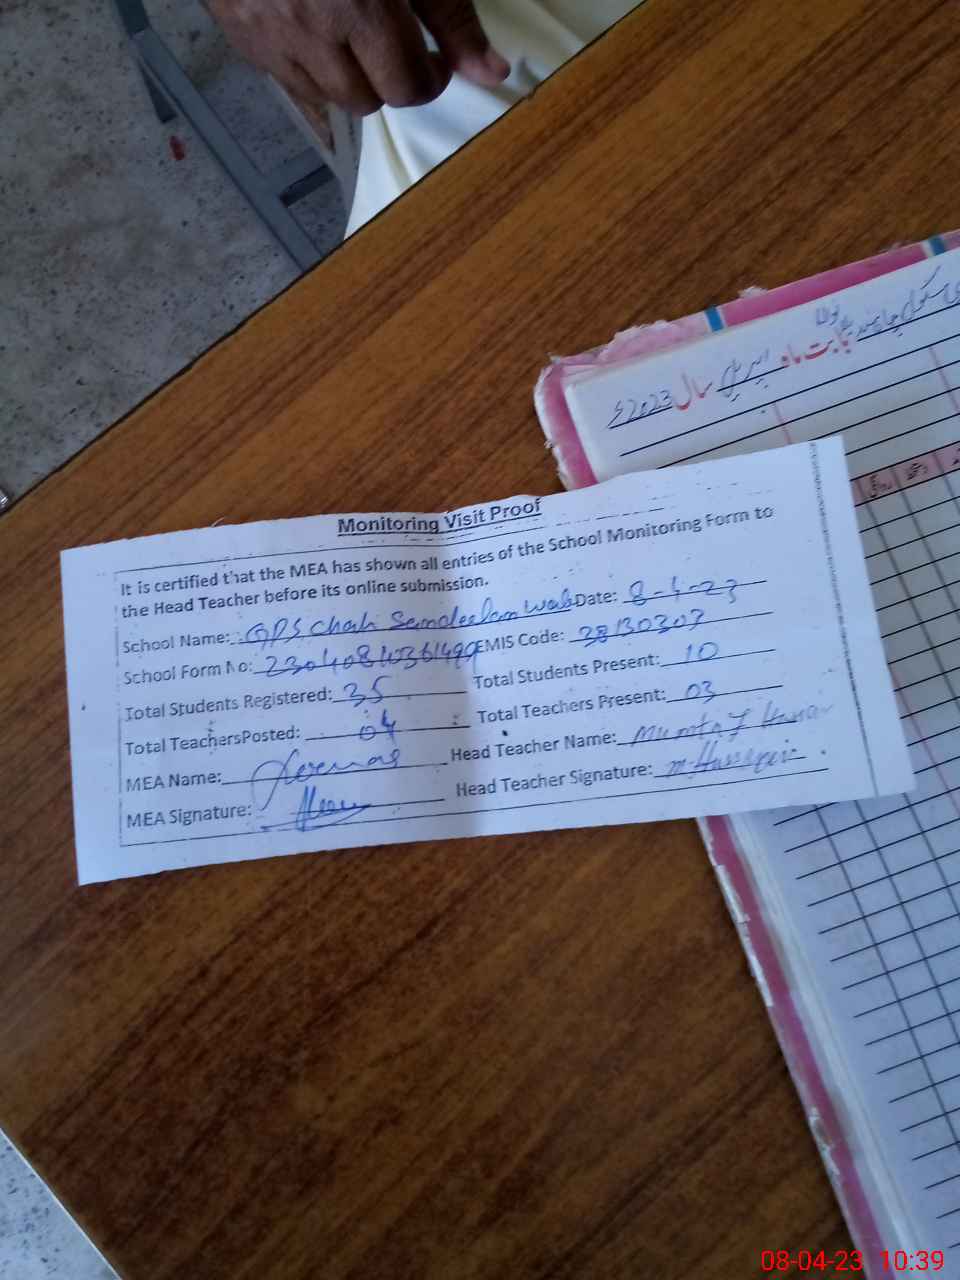 سکول چاہ
بابت ماہ اپریل سال 2023ء
Monitoring Visit Proof
It is certified that the MEA has shown all entries of the School Monitoring Form to
the Head Teacher before its online submission.
School Name: GPS Chah Date: 8-4-23
School Form No: EMIS Code: 38130307
Total Students Registered: 35 Total Students Present: 10
Total TeachersPosted: 04 Total Teachers Present: 03
MEA Name: Head Teacher Name:
MEA Signature: Head Teacher Signature: M. Hussain
08-04-23 10:39